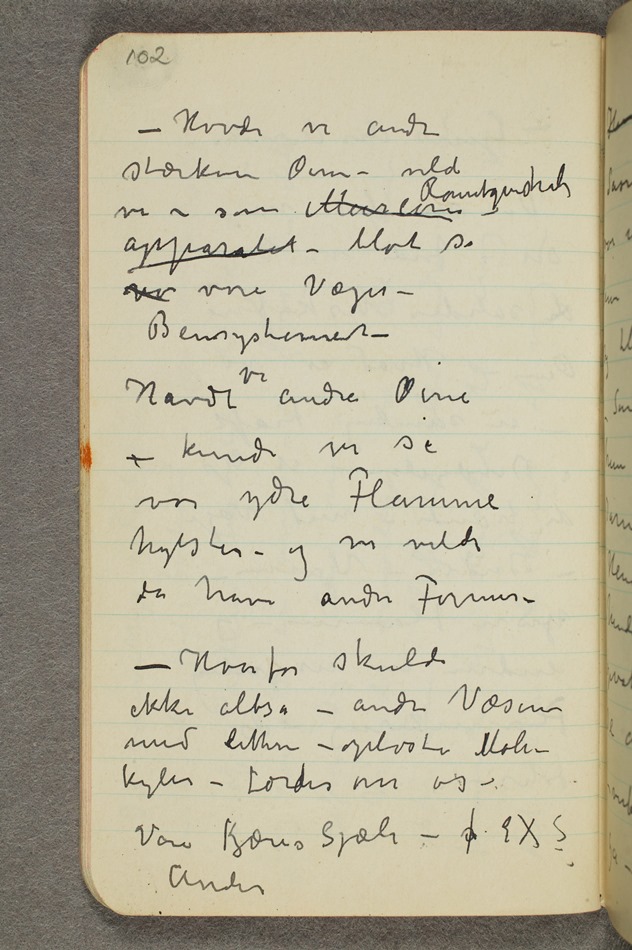 102
– Havde vi andre
stærkere Øine – vild
vi se som Marconi
apparatet – blot se
vor vore Væger –
Bensystemmet –
Havde vi andre Øine
– kunde vi se
vor ydre Flamme
hylster – og vi vilde
da have andre Former –
– Hvorfor skulde
ikke altså – andre Væsener
med lettere – opløste Mole–
kyler – færdes om os –
Vore Kjæres Sjæle – f. EXS
Ånder